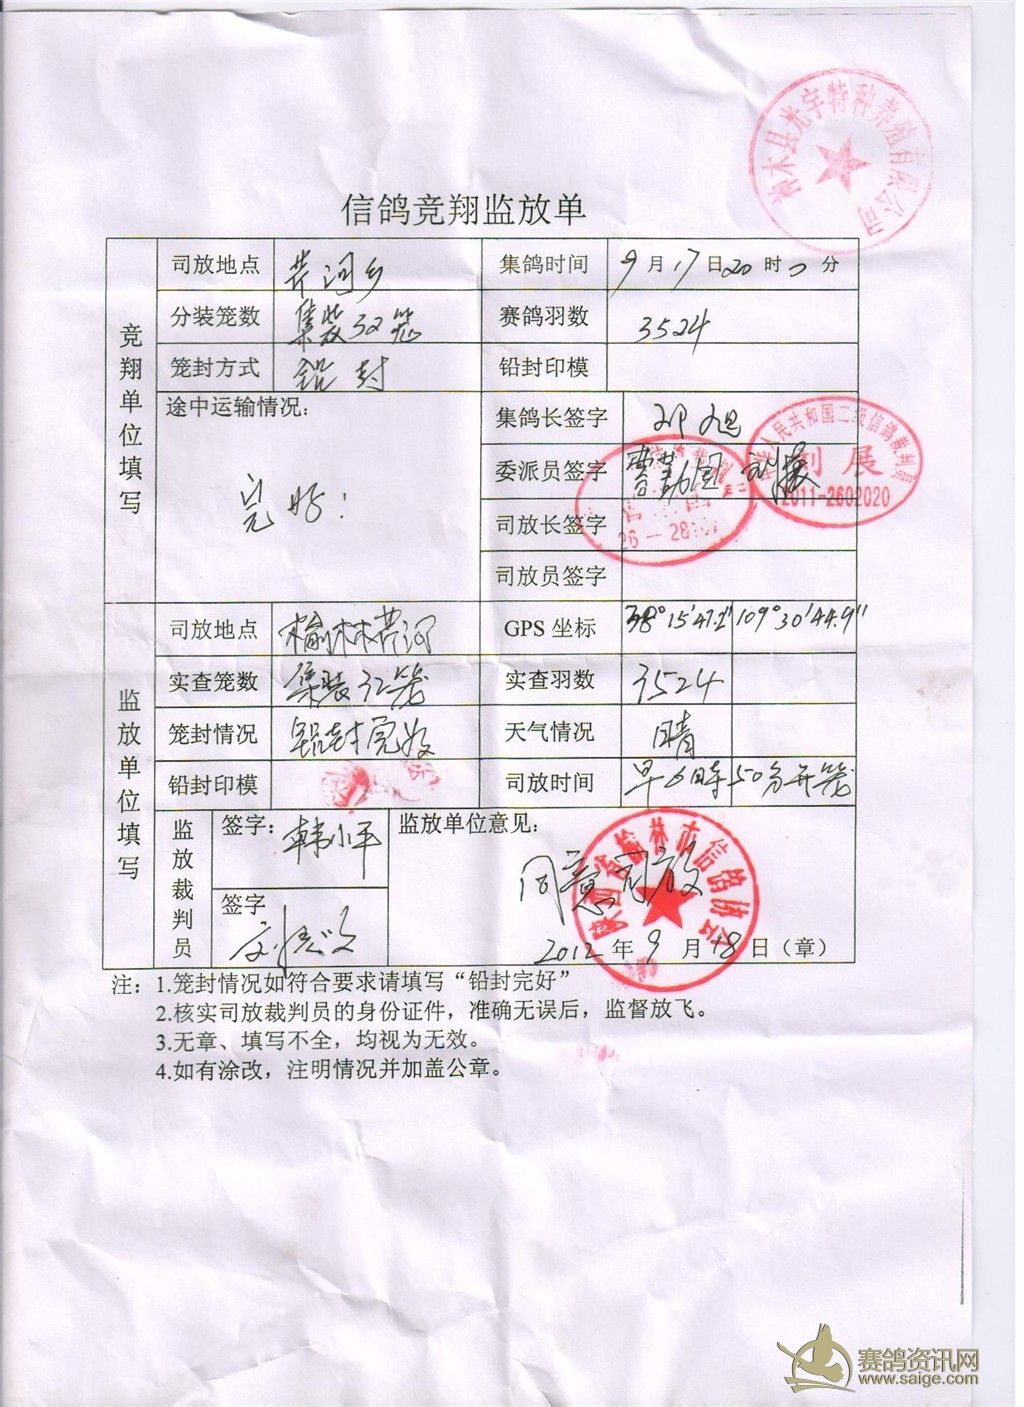 神木县光宇特种养殖有限公司
信鸽竞翔监放单
竞翔单位填写
司放地点 芹河乡 集鸽时间 9月17日20时 分
分装笼数 集装32笼 赛鸽羽数 3524
笼封方式 铅封 铅封印模
途中运输情况： 完好！
集鸽长签字 邓旭
委派员签字 曹勤国 刘展
中华人民共和国二级信鸽裁判员
刘展
2011-2602020
司放长签字
司放员签字
监放单位填写
司放地点 榆林芹河 GPS 坐标 38°15'47.2" 109°30'44.9"
实查笼数 集装32笼 实查羽数 3524
笼封情况 铅封完好 天气情况 晴
铅封印模 司放时间 早6时50分开笼
监放裁判员
签字： 韩小平
签字
监放单位意见：
同意司放
陕西省榆林市信鸽协会
2012年9月18日（章）
注：1.笼封情况如符合要求请填写“铅封完好”
2.核实司放裁判员的身份证件，准确无误后，监督放飞。
3.无章、填写不全，均视为无效。
4.如有涂改，注明情况并加盖公章。
赛鸽资讯网
www.saige.com